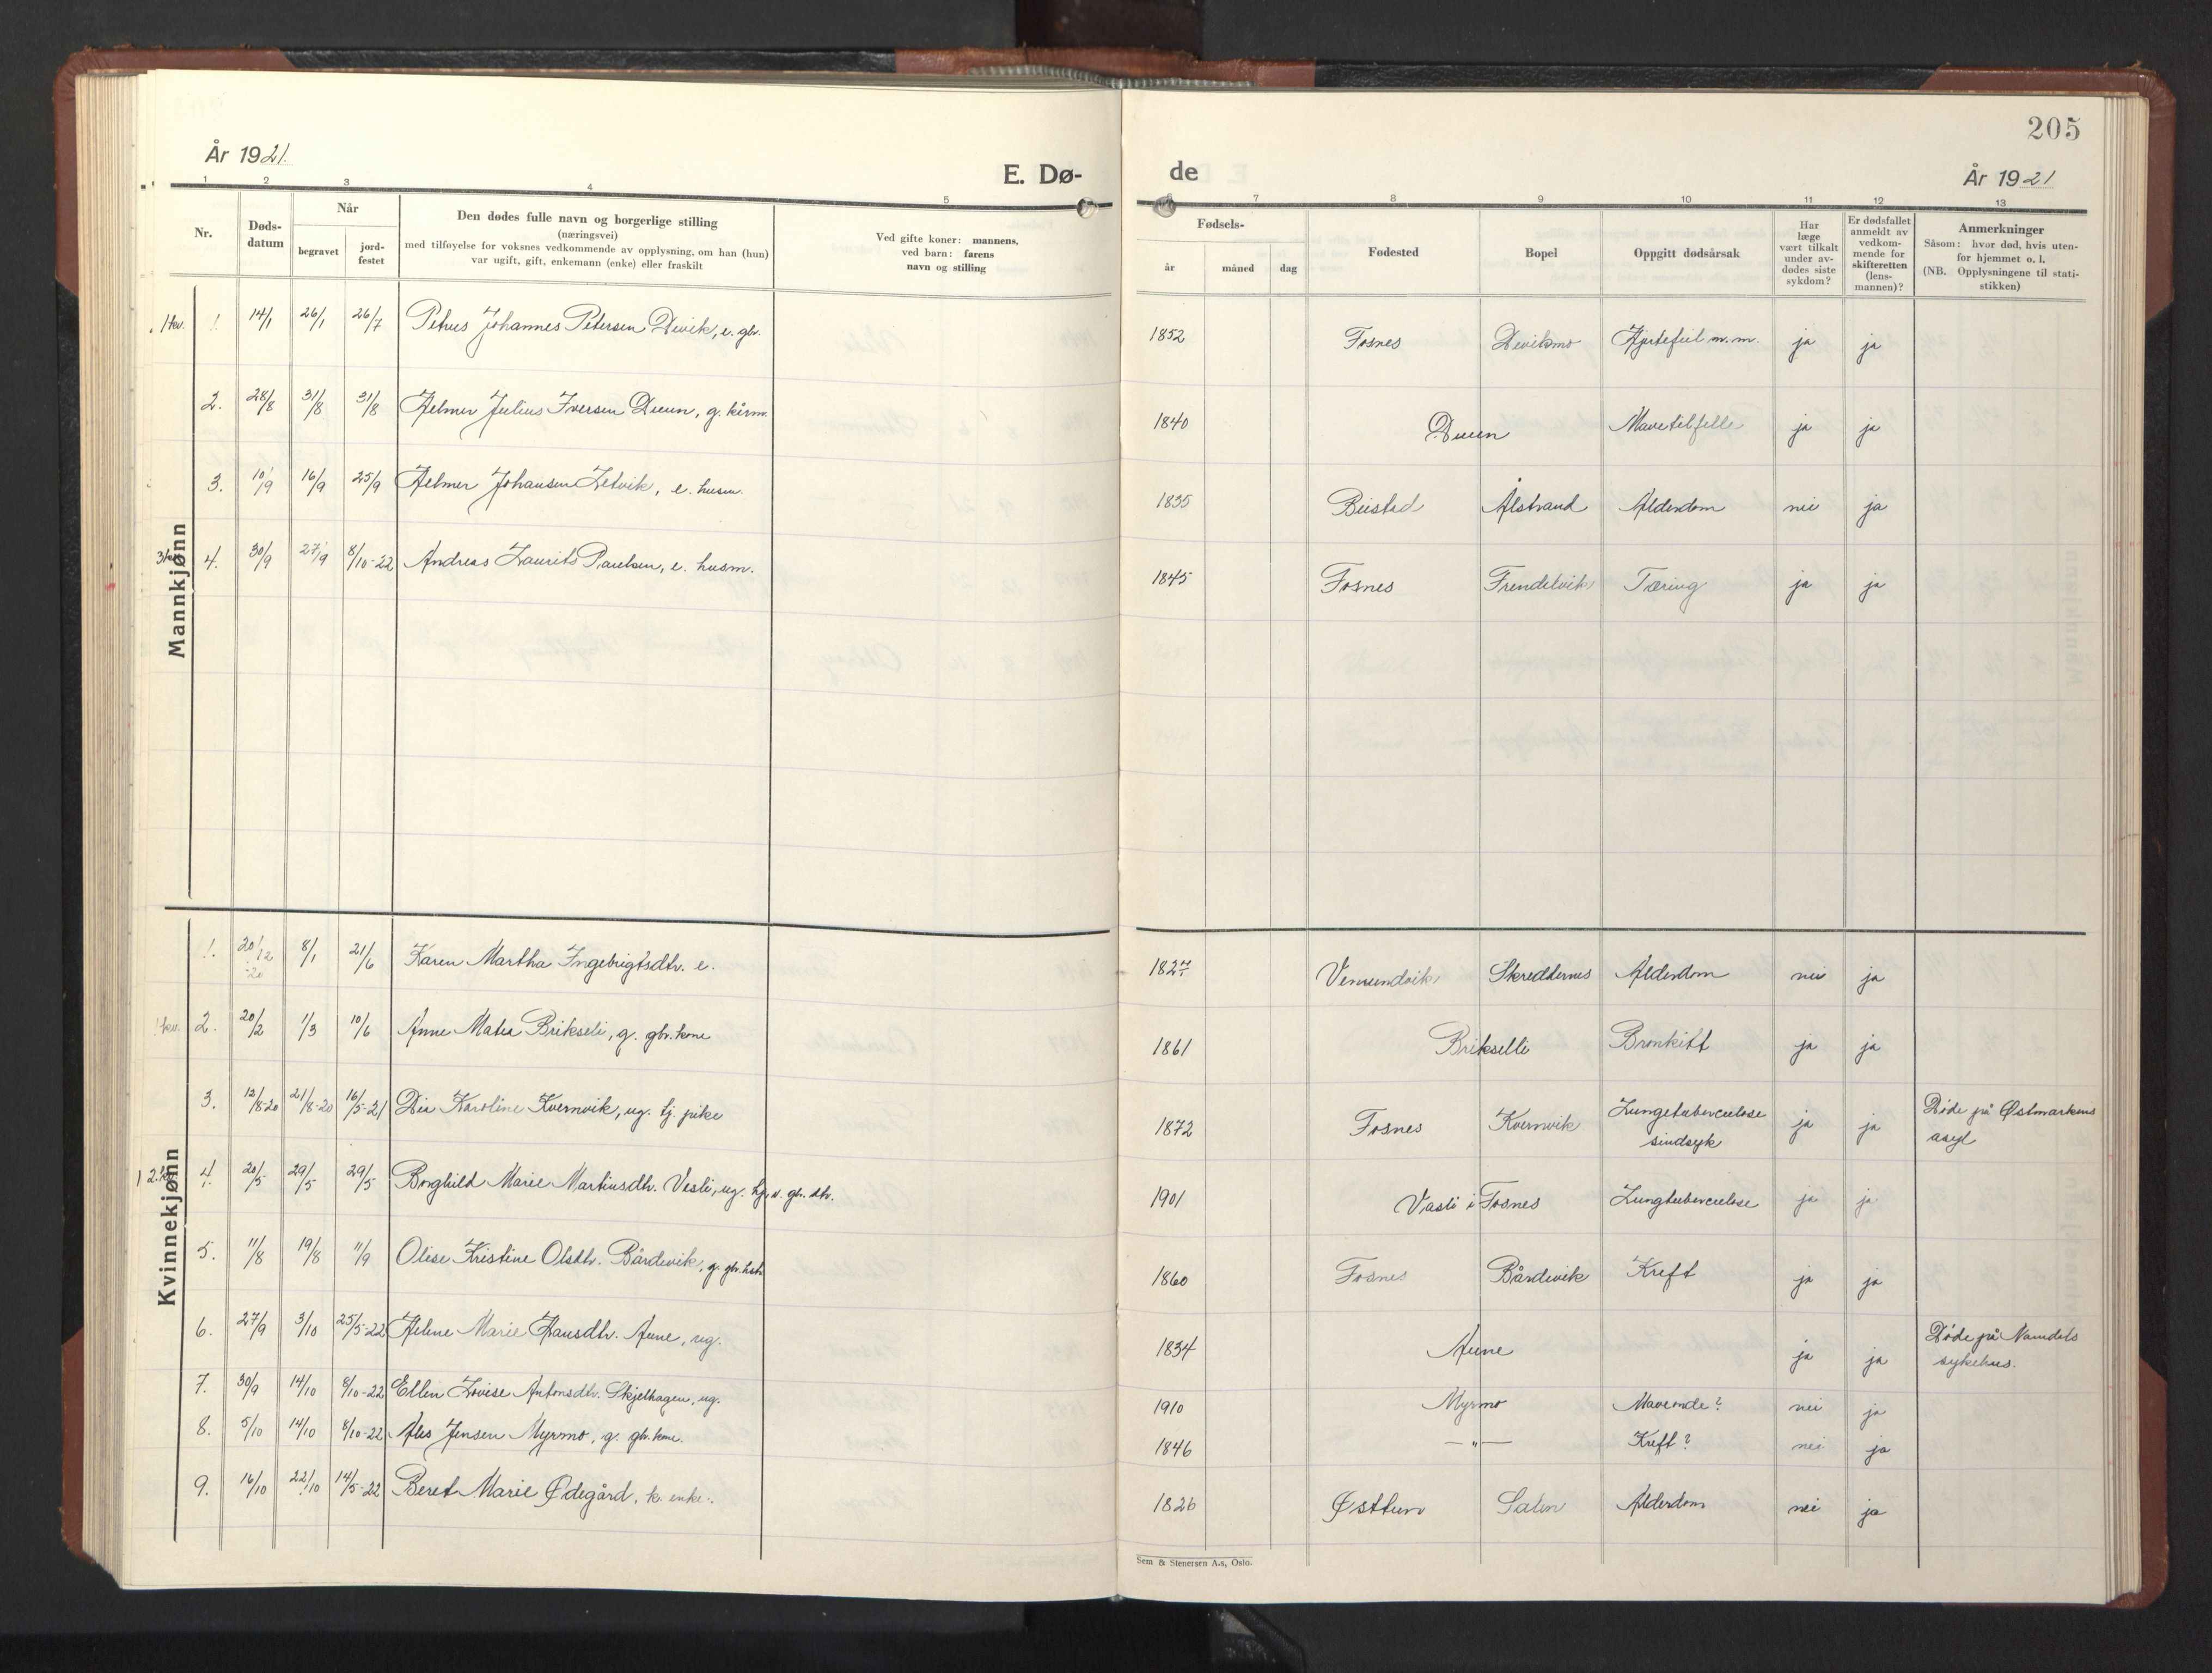 205
År 1921.
E. Dø-
de
År 1921
1 2 3 4 5
7 8 9 10 11 12 13
Nr.
Døds-
datum
Når
begravet
jord-
festet
Den dødes fulle navn og borgerlige stilling
(næringsvei)
med tilføyelse for voksnes vedkommende av opplysning, om han (hun)
var ugift, gift, enkemann (enke) eller fraskilt
Ved gifte koner: mannens,
ved barn: farens
navn og stilling
Fødsels-
år
måned
dag
Fødested
Bopel
Oppgitt dødsårsak
Har
læge
vært tilkalt
under av-
dødes siste
sykdom?
Er dødsfallet
anmeldt av
vedkom-
mende for
skifteretten
(lens-
mannen)?
Anmerkninger
Såsom: hvor død, hvis uten-
for hjemmet o. l.
(NB. Opplysningene til stati-
stikken)
Mannkjønn
1 kv. 1. 14/1 26/1 26/7 Petrus Johannes Petersen Devik, e. gbr. 1852 Fosnes Devikmo Hjertefeil m.m. ja ja
2. 28/8 31/8 31/8 Helmer Julius Iversen Duun, g. kårm. 1840 Duun Mavetilfelle ja ja
3. 10/9 16/9 25/9 Helmer Johansen Zetvik, e. husm. 1835 Beistad Ålstrand Alderdom nei ja
4. 30/9 27/9 8/10-22 Andreas Laurits Paulsen, e. husm. 1845 Fosnes Frendelvik Tæring ja ja
Kvinnekjønn
1. 20/12-20 8/1 21/6 Karen Martha Ingebrigtsdtr. e. Vemundvik Skreddernes Alderdom nei ja
1 kv. 2. 20/2 1/3 10/6 Anne Matea Brikseli, g. gbr. kone 1861 Brikselli Bronkitt ja ja
3. 12/8-20 21/8-20 16/5-21 Dea Karoline Kvernvik, ug. tj. pike 1872 Fosnes Kvernvik Lungetuberculose ja ja Døde på Østmarkens
sindsyk asyl
4. 20/5 29/5 29/5 Borghild Marie Martinsdtr. Vesli, ug. gbr. dtr. 1901 Vasli i Fosnes Lungtuberculose ja ja
5. 11/8 19/8 11/9 Olise Kristine Olsdtr. Bårdevik, g. gbr. 1860 Fosnes Bårdevik Kreft ja ja
6. 27/9 3/10 25/5-22 Helene Marie Hansdtr. Aune, ug. 1834 Aune ja ja Døde på Namdals
sykehus.
7. 30/9 14/10 8/10-22 Ellen Lovise Antonsdtr. Skjelhagen, ug. 1910 Myrmo Maveonde? nei ja
8. 5/10 14/10 8/10-22 Ales Jensen Myrmo, g. gbr. kone. 1846 —"— Kreft? nei ja
9. 16/10 22/10 14/5-22 Beret Marie Ødegård, k. enke. 1826 Østtun Salen Alderdom nei ja
Sem & Stenersen A.s, Oslo.